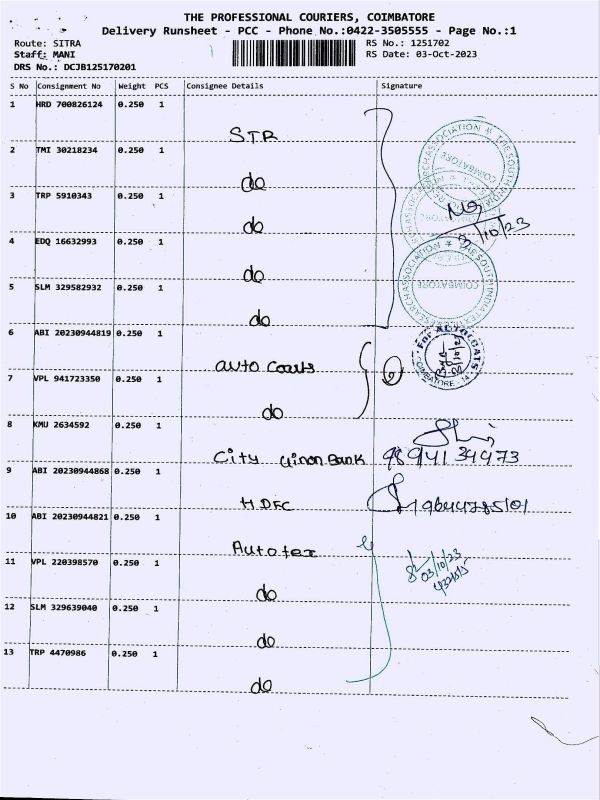 THE PROFESSIONAL COURIERS, COIMBATORE
Delivery Runsheet - PCC - Phone No.:0422-3505555 - Page No.:1
Route: SITRA RS No.: 1251702
Staff: MANI RS Date: 03-Oct-2023
DRS No.: DCJB125170201
S No Consignment No Weight PCS Consignee Details Signature
1 HRD 700826124 0.250 1
STR
2 TMI 30218234 0.250 1
do
3 TRP 5910343 0.250 1
do
4 EDQ 16632993 0.250 1
do
5 SLM 329582932 0.250 1
do
6 ABI 20230944819 0.250 1
auto coats
7 VPL 941723350 0.250 1
do
8 KMU 2634592 0.250 1
City Union Bank
9 ABI 20230944868 0.250 1
HDFC
10 ABI 20230944821 0.250 1
Autotex
11 VPL 220398570 0.250 1
do
12 SLM 329639040 0.250 1
do
13 TRP 4470986 0.250 1
do
3/10/23
THE SOUTH INDIA TEXTILE RESEARCH ASSOCIATION
COIMBATORE
For AUTOCOATS
COIMBATORE - 14
03/10/23